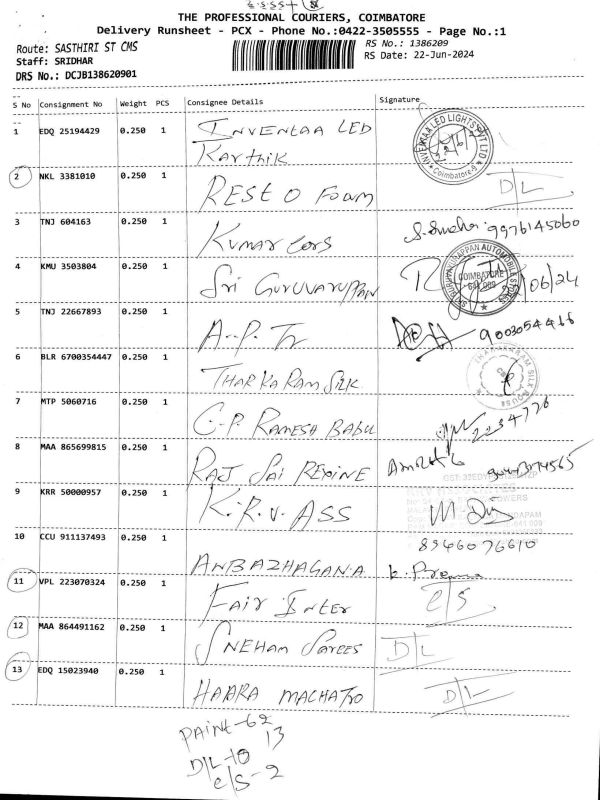 THE PROFESSIONAL COURIERS, COIMBATORE
Delivery Runsheet - PCX - Phone No.:0422-3505555 - Page No.:1
Route: SASTHIRI ST CMS
RS No.: 1386209
Staff: SRIDHAR
RS Date: 22-Jun-2024
DRS No.: DCJB138620901
S No Consignment No Weight PCS Consignee Details Signature
1 EDQ 25194429 0.250 1 INVENTAA LED
Karthik
INVENTAA LED LIGHTS PVT LTD Coimbatore
2 NKL 3381010 0.250 1 REST O Foam D/L
3 TNJ 604163 0.250 1 Kumar Cors 9976145060
4 KMU 3503804 0.250 1 Sri GURUVARUPPAN
COIMBATORE 641 009 /06/24
5 TNJ 22667893 0.250 1 A.P. Tr 9003054466
6 BLR 6700354447 0.250 1 THAR KA RAM SILK
7 MTP 5060716 0.250 1 C.P. RAMESH BABU 2234776
8 MAA 865699815 0.250 1 RAJ SAI REXINE
9 KRR 50000957 0.250 1 K.R.V. ASS
10 CCU 911137493 0.250 1 ANBAZHAGANA 8946076610
11 VPL 223070324 0.250 1 FAIR INTER C/S
12 MAA 864491162 0.250 1 SNEHAM SAREES D/L
13 EDQ 15023940 0.250 1 HAARA MACHATRO D/L
PAINT-62
13
D/L-10
C/S-2